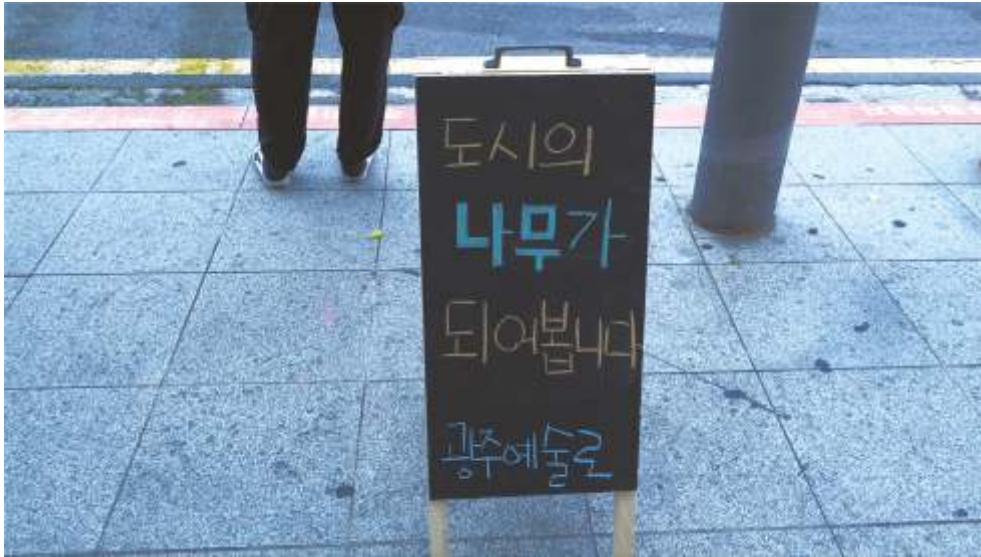 도시의
나무가
되어봅니다
광주예술로